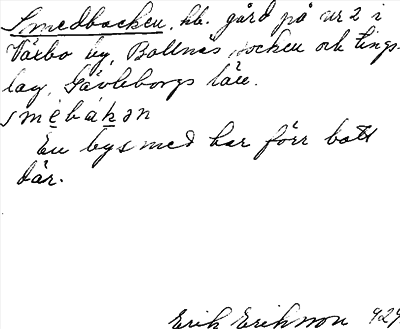 Smedbacken, hb. gård på nr 2 i
Växbo by, Bollnäs socken och tings-
lag, Gävleborgs län.
smèbákən
En bysmed har förr bott
där.
Erik Erikson 1929